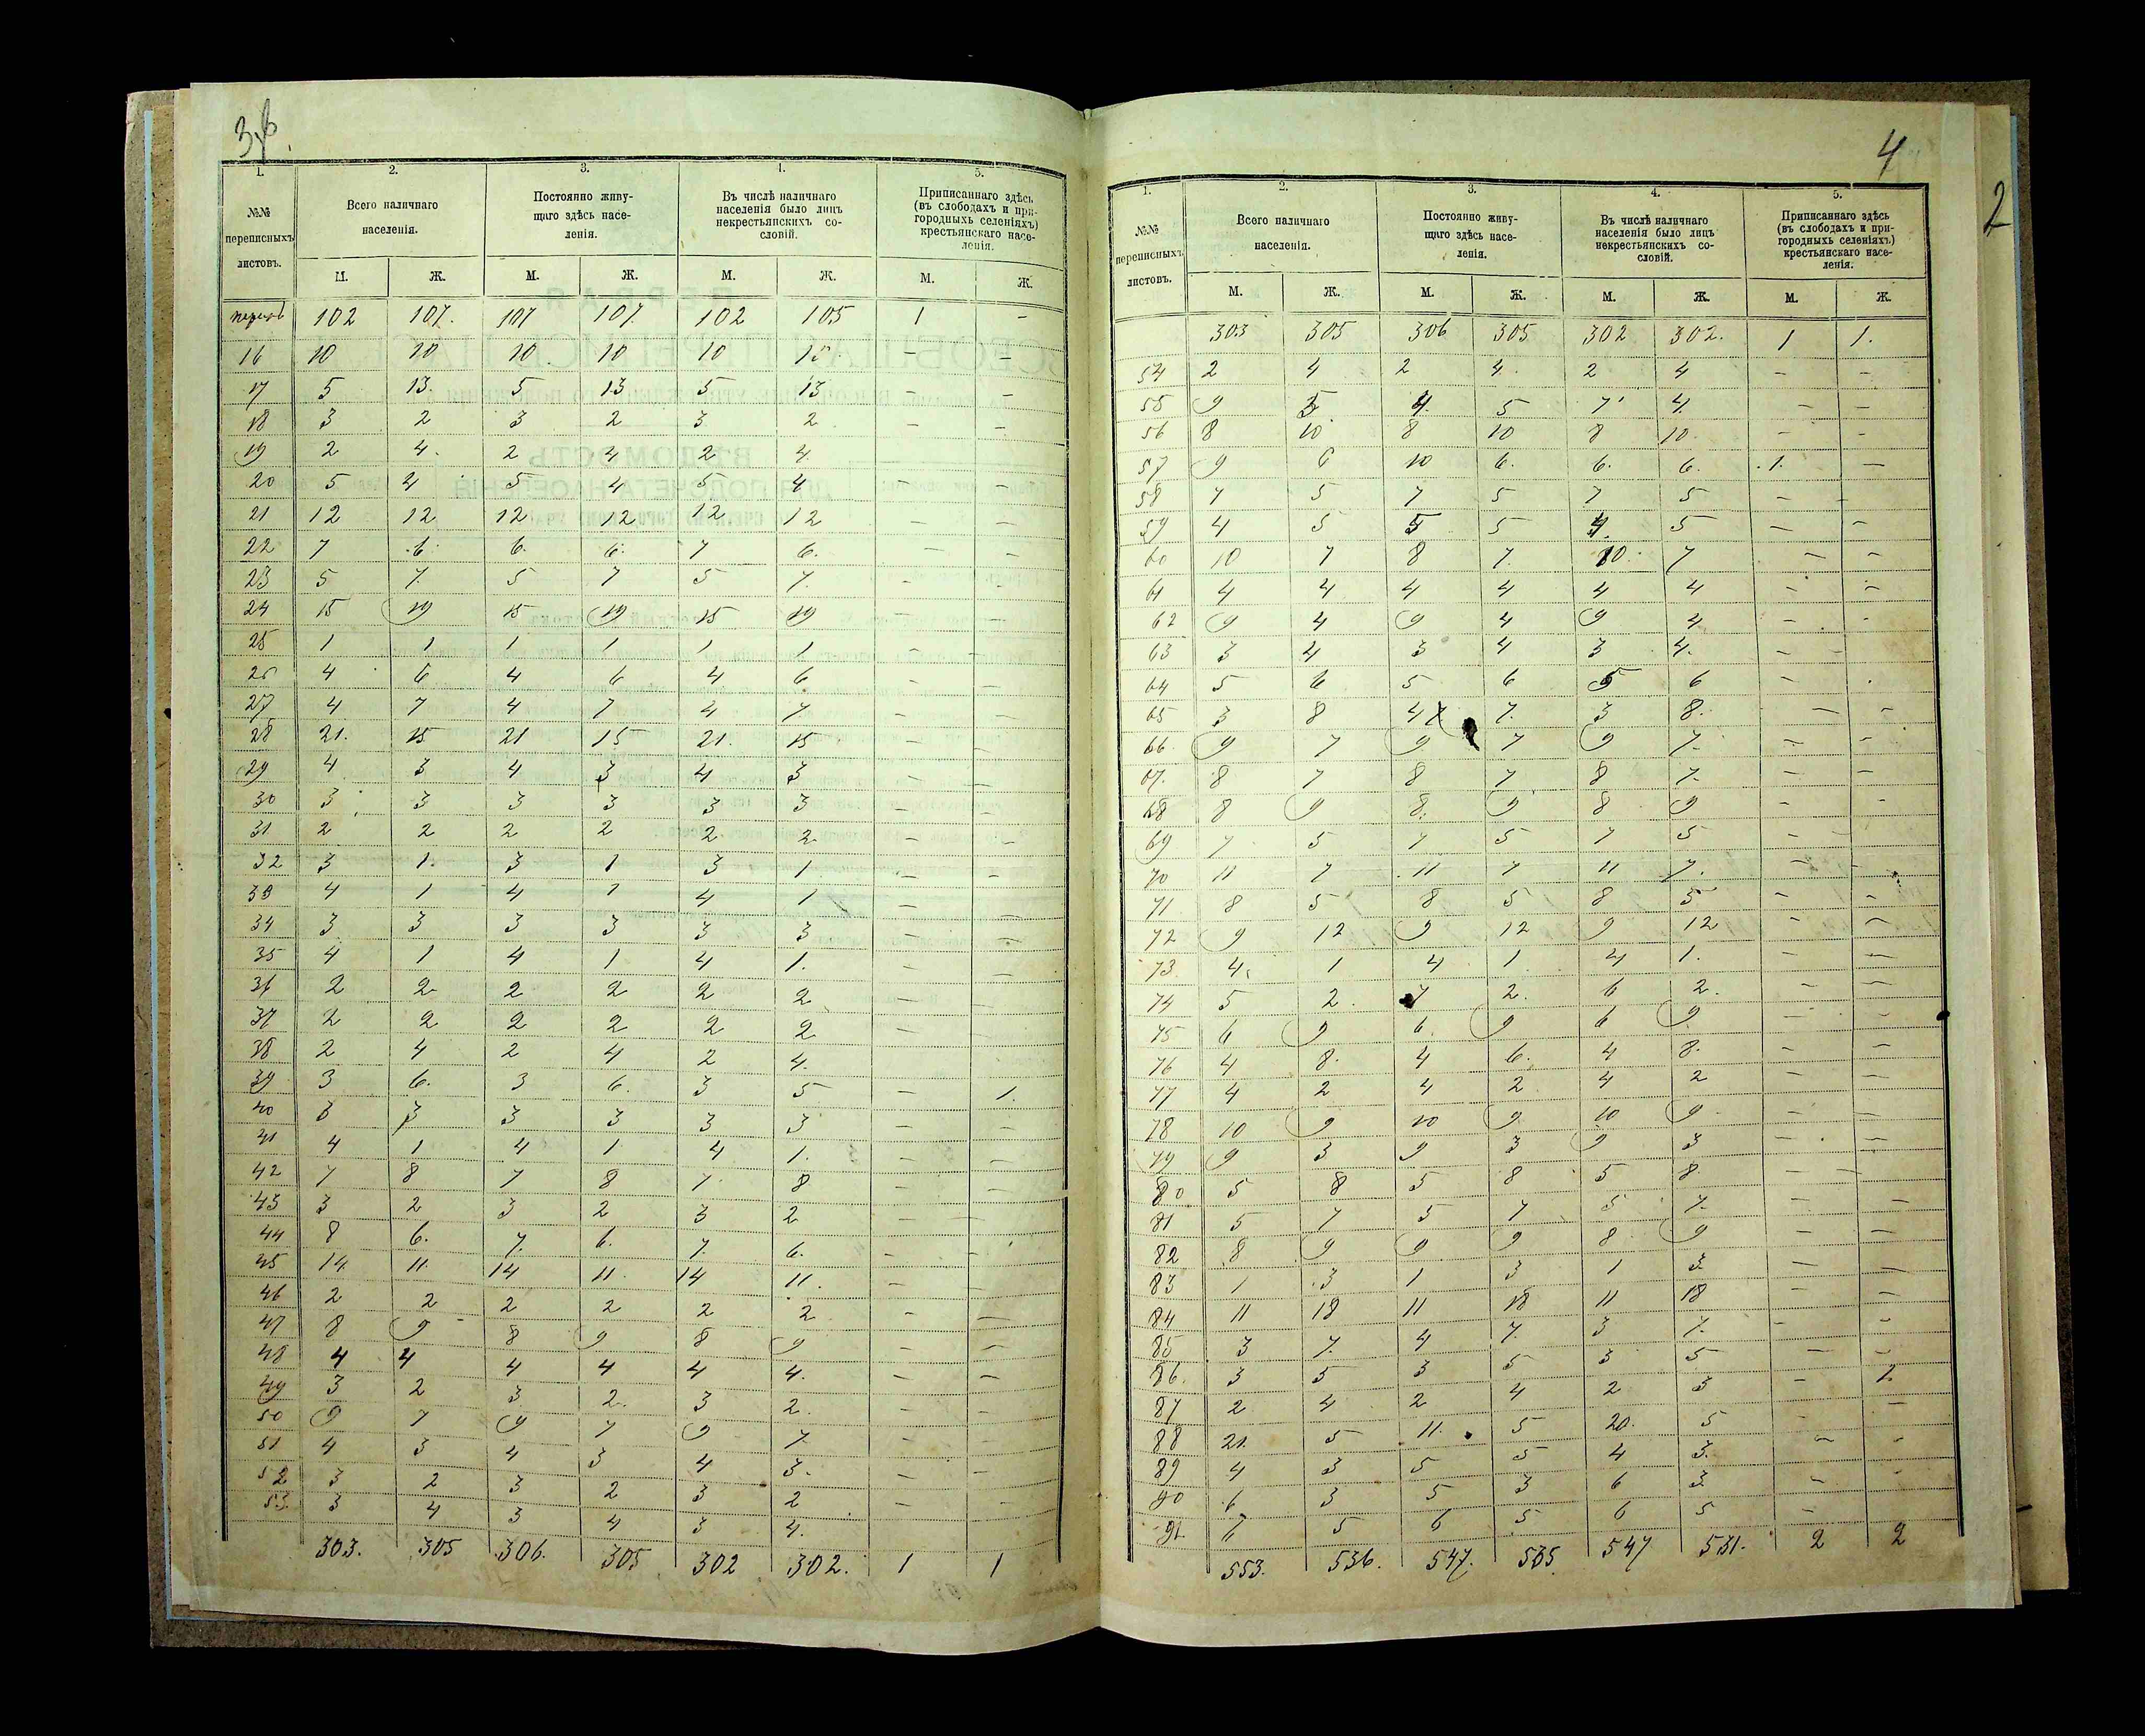 4
2
1. 2. 3. 4. 5.
№№ переписныхъ листовъ.
Всего наличнаго населенія.
Постоянно живу-
щаго здѣсь насе-
ленія.
Въ числѣ наличнаго
населенія было лицъ
некрестьянскихъ со-
словій.
Приписаннаго здѣсь
(въ слободахъ и при-
городныхъ селеніяхъ)
крестьянскаго насе-
ленія.
М. Ж. М. Ж. М. Ж. М. Ж.
102 107. 107 107. 102 105 1 –
16 10 10 10. 10 10 10. – –
17 5 13. 5 13 5 13 – –
18 3 2 3 2 3 2 – –
19 2 4. 2 4 2 4.
20 5 4 5 4 5 4 – –
21 12 12 12 12 12 12 – –
22 7 6 6. 6. 7 6. – –
23 5 7. 5 7 5 7. – –
24 15 19 15 19 15 19 – –
25 1 1 1 1 1 1 – –
26 4 6 4 6 4 6 – –
27 4 7 4 7 4 7 – –
28 21. 15 21 15 21. 15 – –
29 4 3 4 3 4 3 – –
30 3 3 3 3 3 3 – –
31 2 2 2 2 2 2 – –
32 3 1. 3 1 3 1 – –
33 4 1 4 1 4 1 – –
34 3 3 3 3 3 3 – –
35 4 1 4 1 4 1. – –
36 2 2 2 2 2 2 – –
37 2 2 2 2 2 2 –
38 2 4 2 4 2 4.
39 3 6. 3 6. 3 5 – 1.
40 3 3 3 3 3 3 – –
41 4 1 4 1 4 1. – –
42 7 8 7 8 7 8 – –
43 3 2 3 2 3 2 – –
44 8 6. 7. 6. 7. 6. – –
45 14. 11. 14 11. 14 11. –
46 2 2 2 2 2 2 – –
47 8 9 8 9 8 9 – –
48 4 4 4 4 4 4. – –
49 3 2 3 2. 3 2. – –
50 9 7 9 7 9 7. – –
51 4 3 4 3 4 3. – –
52 3 2 3 2 3 2 – –
53 3 4 3 4 3 4.
303. 305 306. 305 302 302. 1 1
1. 2. 3. 4. 5.
№№ переписныхъ листовъ.
Всего наличнаго населенія.
Постоянно живу-
щаго здѣсь насе-
ленія.
Въ числѣ наличнаго
населенія было лицъ
некрестьянскихъ со-
словій.
Приписаннаго здѣсь
(въ слободахъ и при-
городныхъ селеніяхъ)
крестьянскаго насе-
ленія.
М. Ж. М. Ж. М. Ж. М. Ж.
303 305 306 305 302 302. 1 1.
54 2 4 2 4. 2 4 – –
55 9 5 4. 5 7 4. – –
56 8 10 8 10 8 10. – –
57 9 6 10 6. 6. 6. 1. –
58 7 5 7 5 7 5 – –
59 4 5 5 5 4. 5 – –
60 10 7 8 7. 10. 7 – –
61 4 4 4 4 4 4 – –
62 9 4 9 4 9 4 – –
63 3 4 3 4 3 4. – –
64 5 6 5 6 5 6 –
65 3 8 4 7. 3 8. – –
66 9 7 9 7 9 7. – –
67. 8 7 8 7 8 7. – –
68 8 9 8. 9 8 9 – –
69 7 5 7 5 7 5 – –
70 11 7 11 7 11 7. – –
71 8 5 8 5 8 5 – –
72 9 12 9 12 9 12 – –
73 4. 1 4 1 4 1. – –
74 5 2. 7 2. 6 2. – –
75 6 9 6. 9 6 9 – –
76 4 8. 4 6. 4 8. – –
77 4 2 4 2 4 2 – –
78 10 9 10 9 10 9 – –
79 9 3 9 3 9 3 – –
80 5 8 5 8 5 8 – –
81 5 7 5 7 5 7. – –
82 8 9 9 9 8 9 – –
83 1 3 1 3 1 3. – –
84 11 18 11 18 11 18 – –
85 3 7. 4 7. 3 7. – –
86. 3 5 3 5 3 5 – –
87 2 4 2 4 2 3 – 1.
88 21. 5 11. 5 20. 5 – –
89 4 3 5 5 4 3. – –
90 6 3 5 3 6 3. – –
91. 7 5 6 5 6 5 –
553. 536. 547. 535. 547 531. 2 2